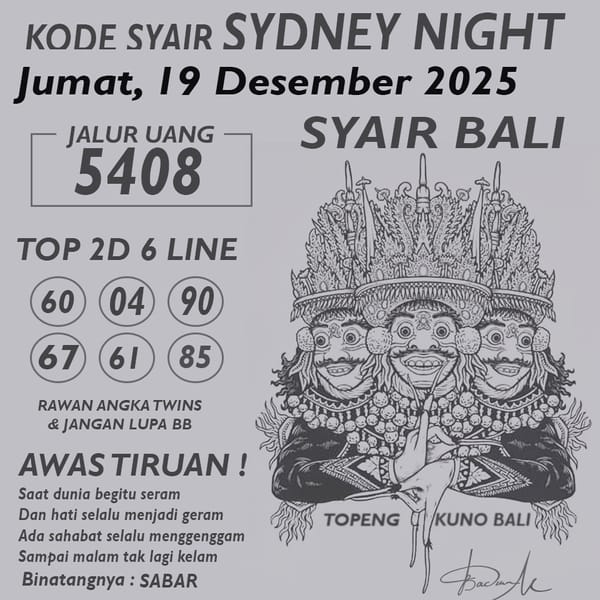 KODE SYAIR SYDNEY NIGHT
Jumat, 19 Desember 2025
JALUR UANG
5408
SYAIR BALI
TOP 2D 6 LINE
60 04 90
67 61 85
RAWAN ANGKA TWINS
& JANGAN LUPA BB
AWAS TIRUAN !
Saat dunia begitu seram
Dan hati selalu menjadi geram
Ada sahabat selalu menggenggam
Sampai malam tak lagi kelam
Binatangnya : SABAR
TOPENG KUNO BALI